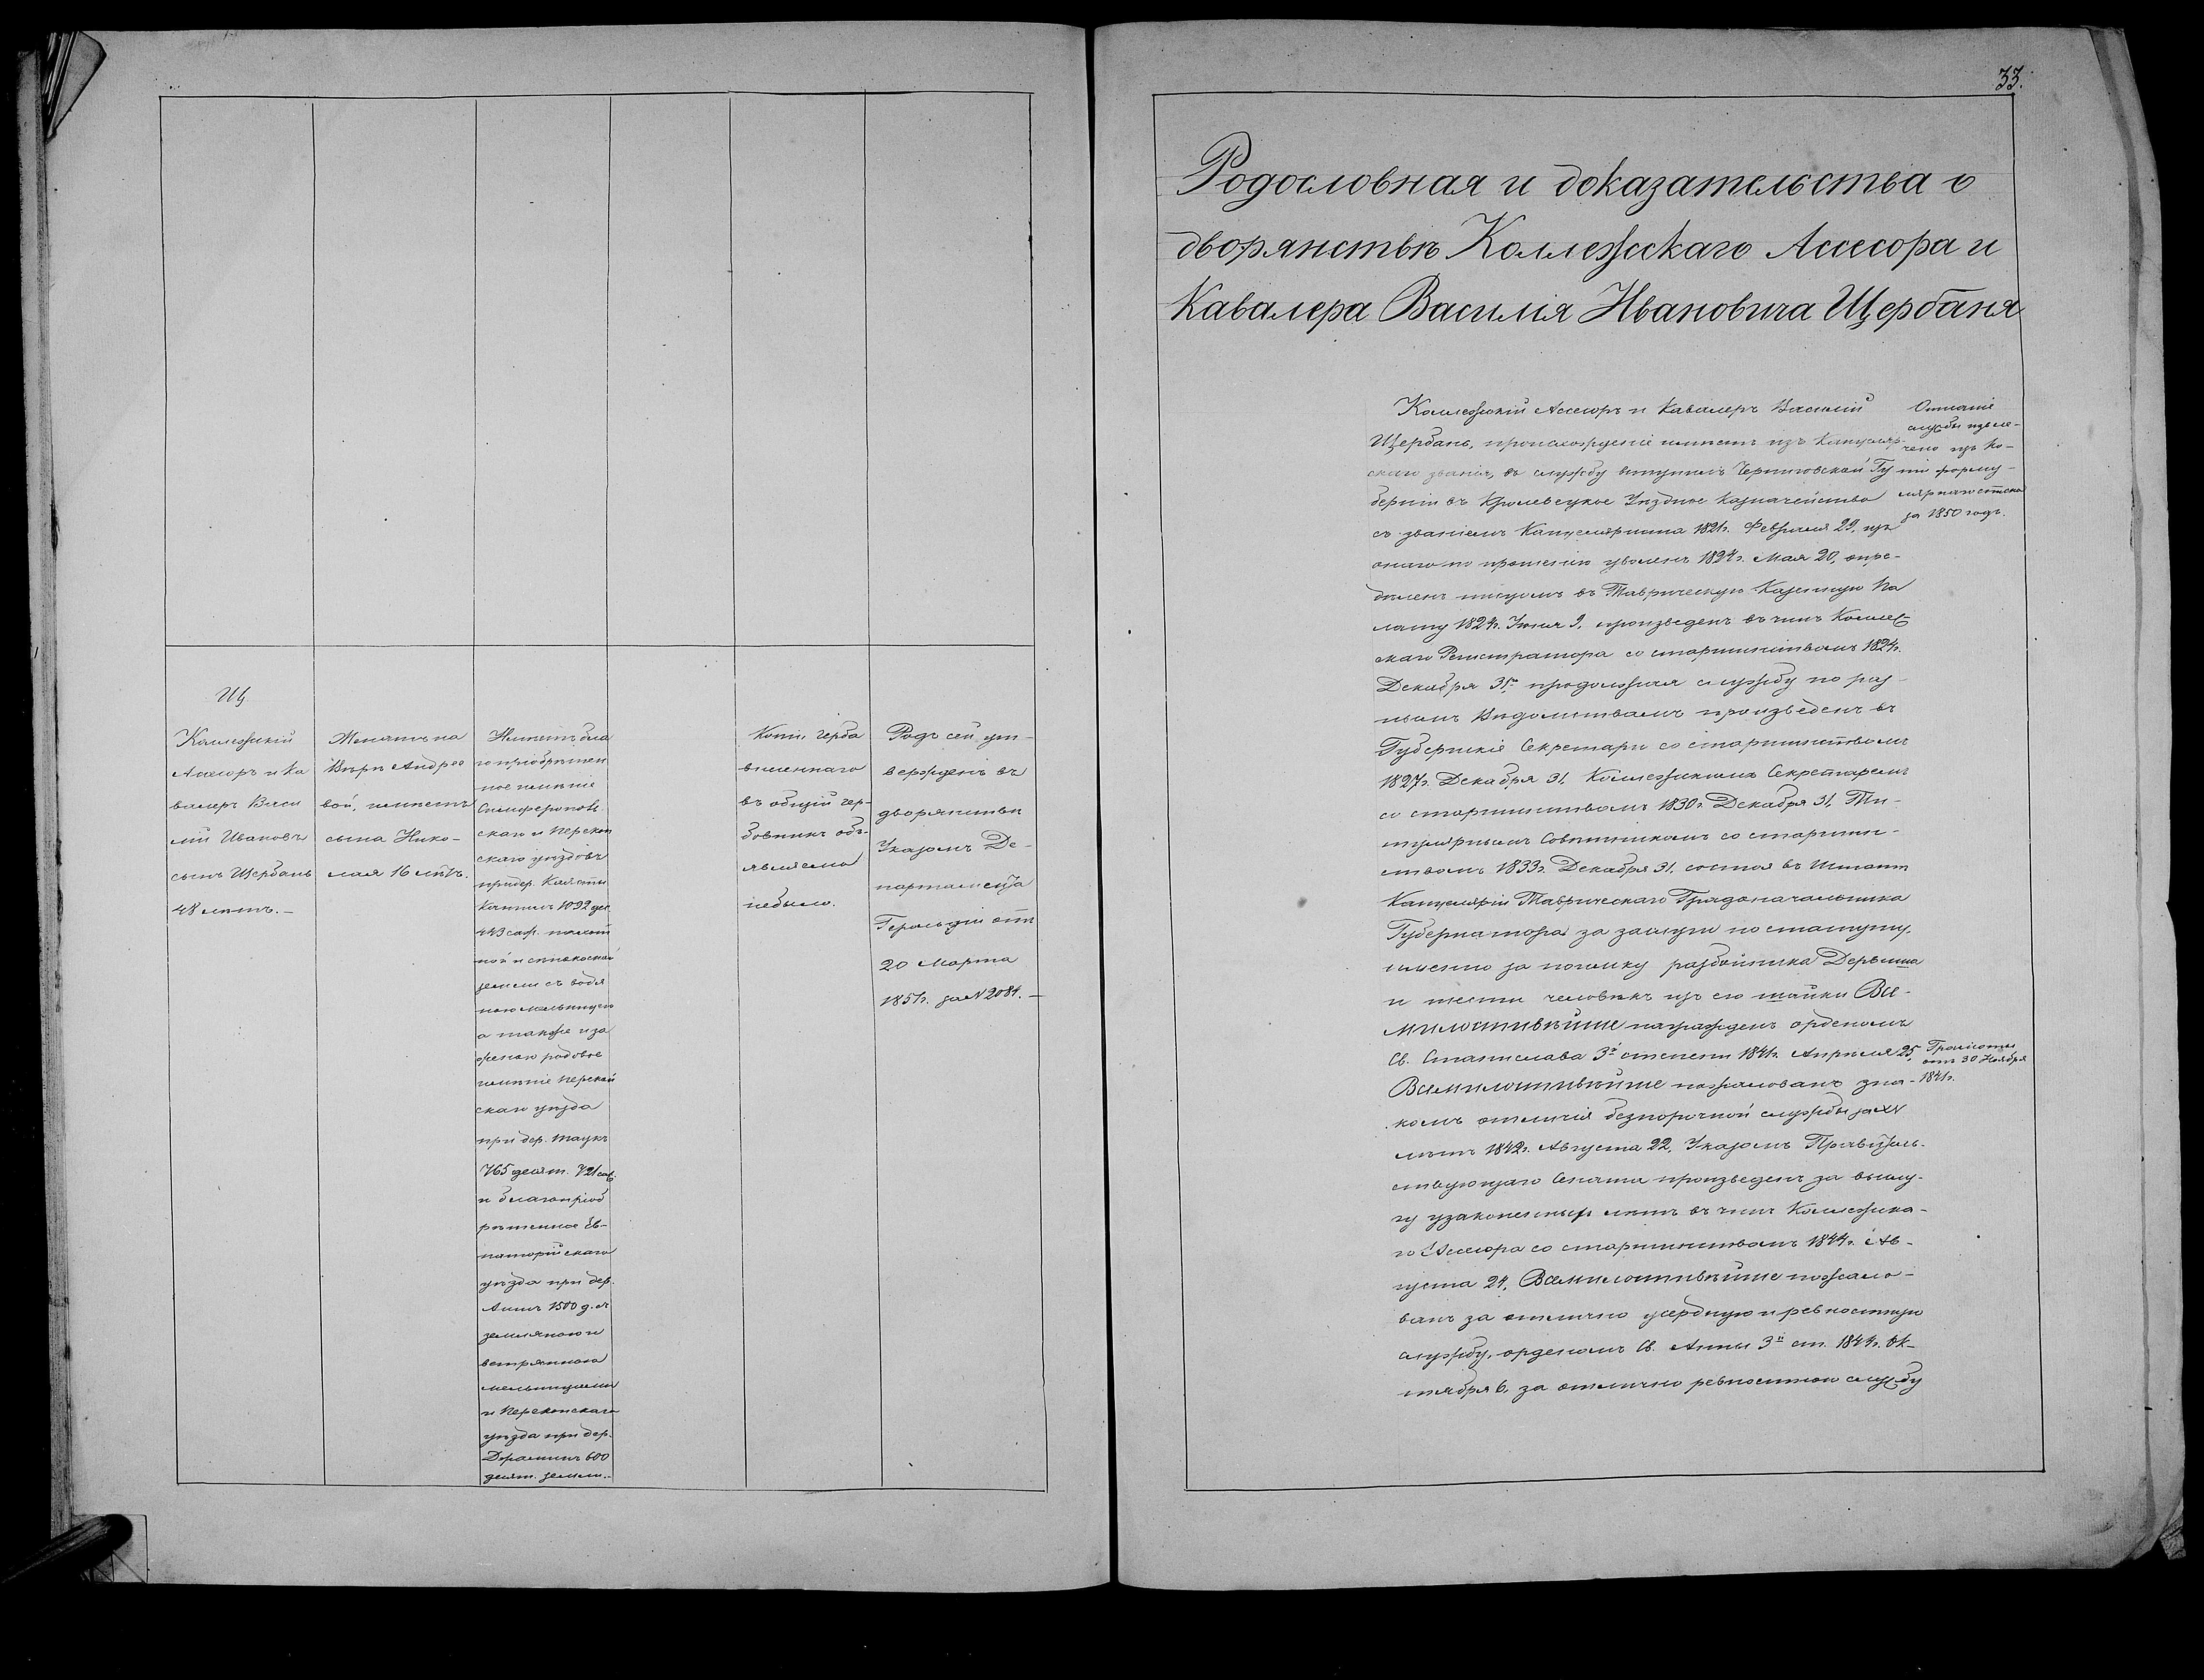 Щ
Коллежскій
Асессоръ и Ка
валеръ Васи
лій Ивановъ
сынъ Щербань
48 лѣтъ.—
Женатъ на
Вѣрѣ Андрее
вой, имѣетъ
сына Нико-
лая 16 лѣтъ.
Имѣетъ бла
гопріобрѣтен
ное имѣніе
Симферополь
скаго и Перекоп
скаго уѣздовъ
при дер.
1092 дес.
443 саж. пахот
ной и сѣнокосной
земли съ водя
ною мельницею
а также и за
женою родовое
имѣніе Перекоп
скаго уѣзда
при дер.
765 десят. 721 саж.
и благопріоб
рѣтенное Ев-
паторійскаго
уѣзда при дер.
1500 д. съ
земляною и
вѣтряною
мельницами
и Перекопскаго
уѣзда при дер.
600
десят. земли.—
Копіи герба
въ общій гер-
бовникъ объ-
являемо
небыло.
Родъ сей ут-
вержденъ въ
дворянствѣ
Указомъ Де-
партамента
Герольдіи отъ
20 Марта
1851г. за N 2084.—
33.
Родословная и доказательства о
дворянствѣ Коллежскаго Асессора и
Кавалера Василія Ивановича Щербаня
Коллежскій Асессоръ и Кавалеръ Василій
Щербань, происхожденіе имѣетъ изъ Канцеляр-
скаго званія, въ службу вступилъ Черниговской Гу
берніи въ Кролевецкое Уѣздное Казначейство
съ званіемъ Канцеляриста 1821г. Февраля 29, изъ
онаго по прошенію уволенъ 1824г. Мая 20, опре-
дѣленъ писцомъ въ Таврическую Казенную Па
лату 1824г. Іюня 9, произведенъ въ чинъ Коллеж-
скаго Регистратора со старшинствомъ 1824г.
Декабря 31, продолжая службу по раз-
нымъ Вѣдомствамъ произведенъ въ
Губернскіе Секретари со старшинствомъ
1827г. Декабря 31, Коллежскимъ Секретаремъ
со старшинствомъ 1830г. Декабря 31, Ти-
тулярнымъ Совѣтникомъ со старшин-
ствомъ 1833г. Декабря 31, состоя въ Штатѣ
Канцеляріи Таврическаго Гражданскаго
Губернатора за заслуги по статуту,
именно за поимку разбойника Дервиша
и шести человѣкъ изъ его шайки Все-
милостивѣйше награжденъ орденомъ
Св. Станислава 3й степени 1841г. Апрѣля 25,
Всемилостивѣйше пожалованъ зна-
комъ отличія безпорочной службы за XV
лѣтъ 1842г. Августа 22, Указомъ Правитель-
ствующаго Сената произведенъ за выслу-
гу узаконенныхъ лѣтъ въ чинъ Коллежска-
го Асессора со старшинствомъ 1844г. Ав-
густа 24, Всемилостивѣйше пожало-
ванъ за отлично усердную и ревностную
службу, орденомъ Св. Анны 3й ст. 1844г. Ок-
тября 6, за отлично ревностную службу
Описаніе
службы извле-
чено изъ Ко-
піи форму-
лярнаго списка
за 1850 годъ.
Грамоты
отъ 30 Ноября
1841г.